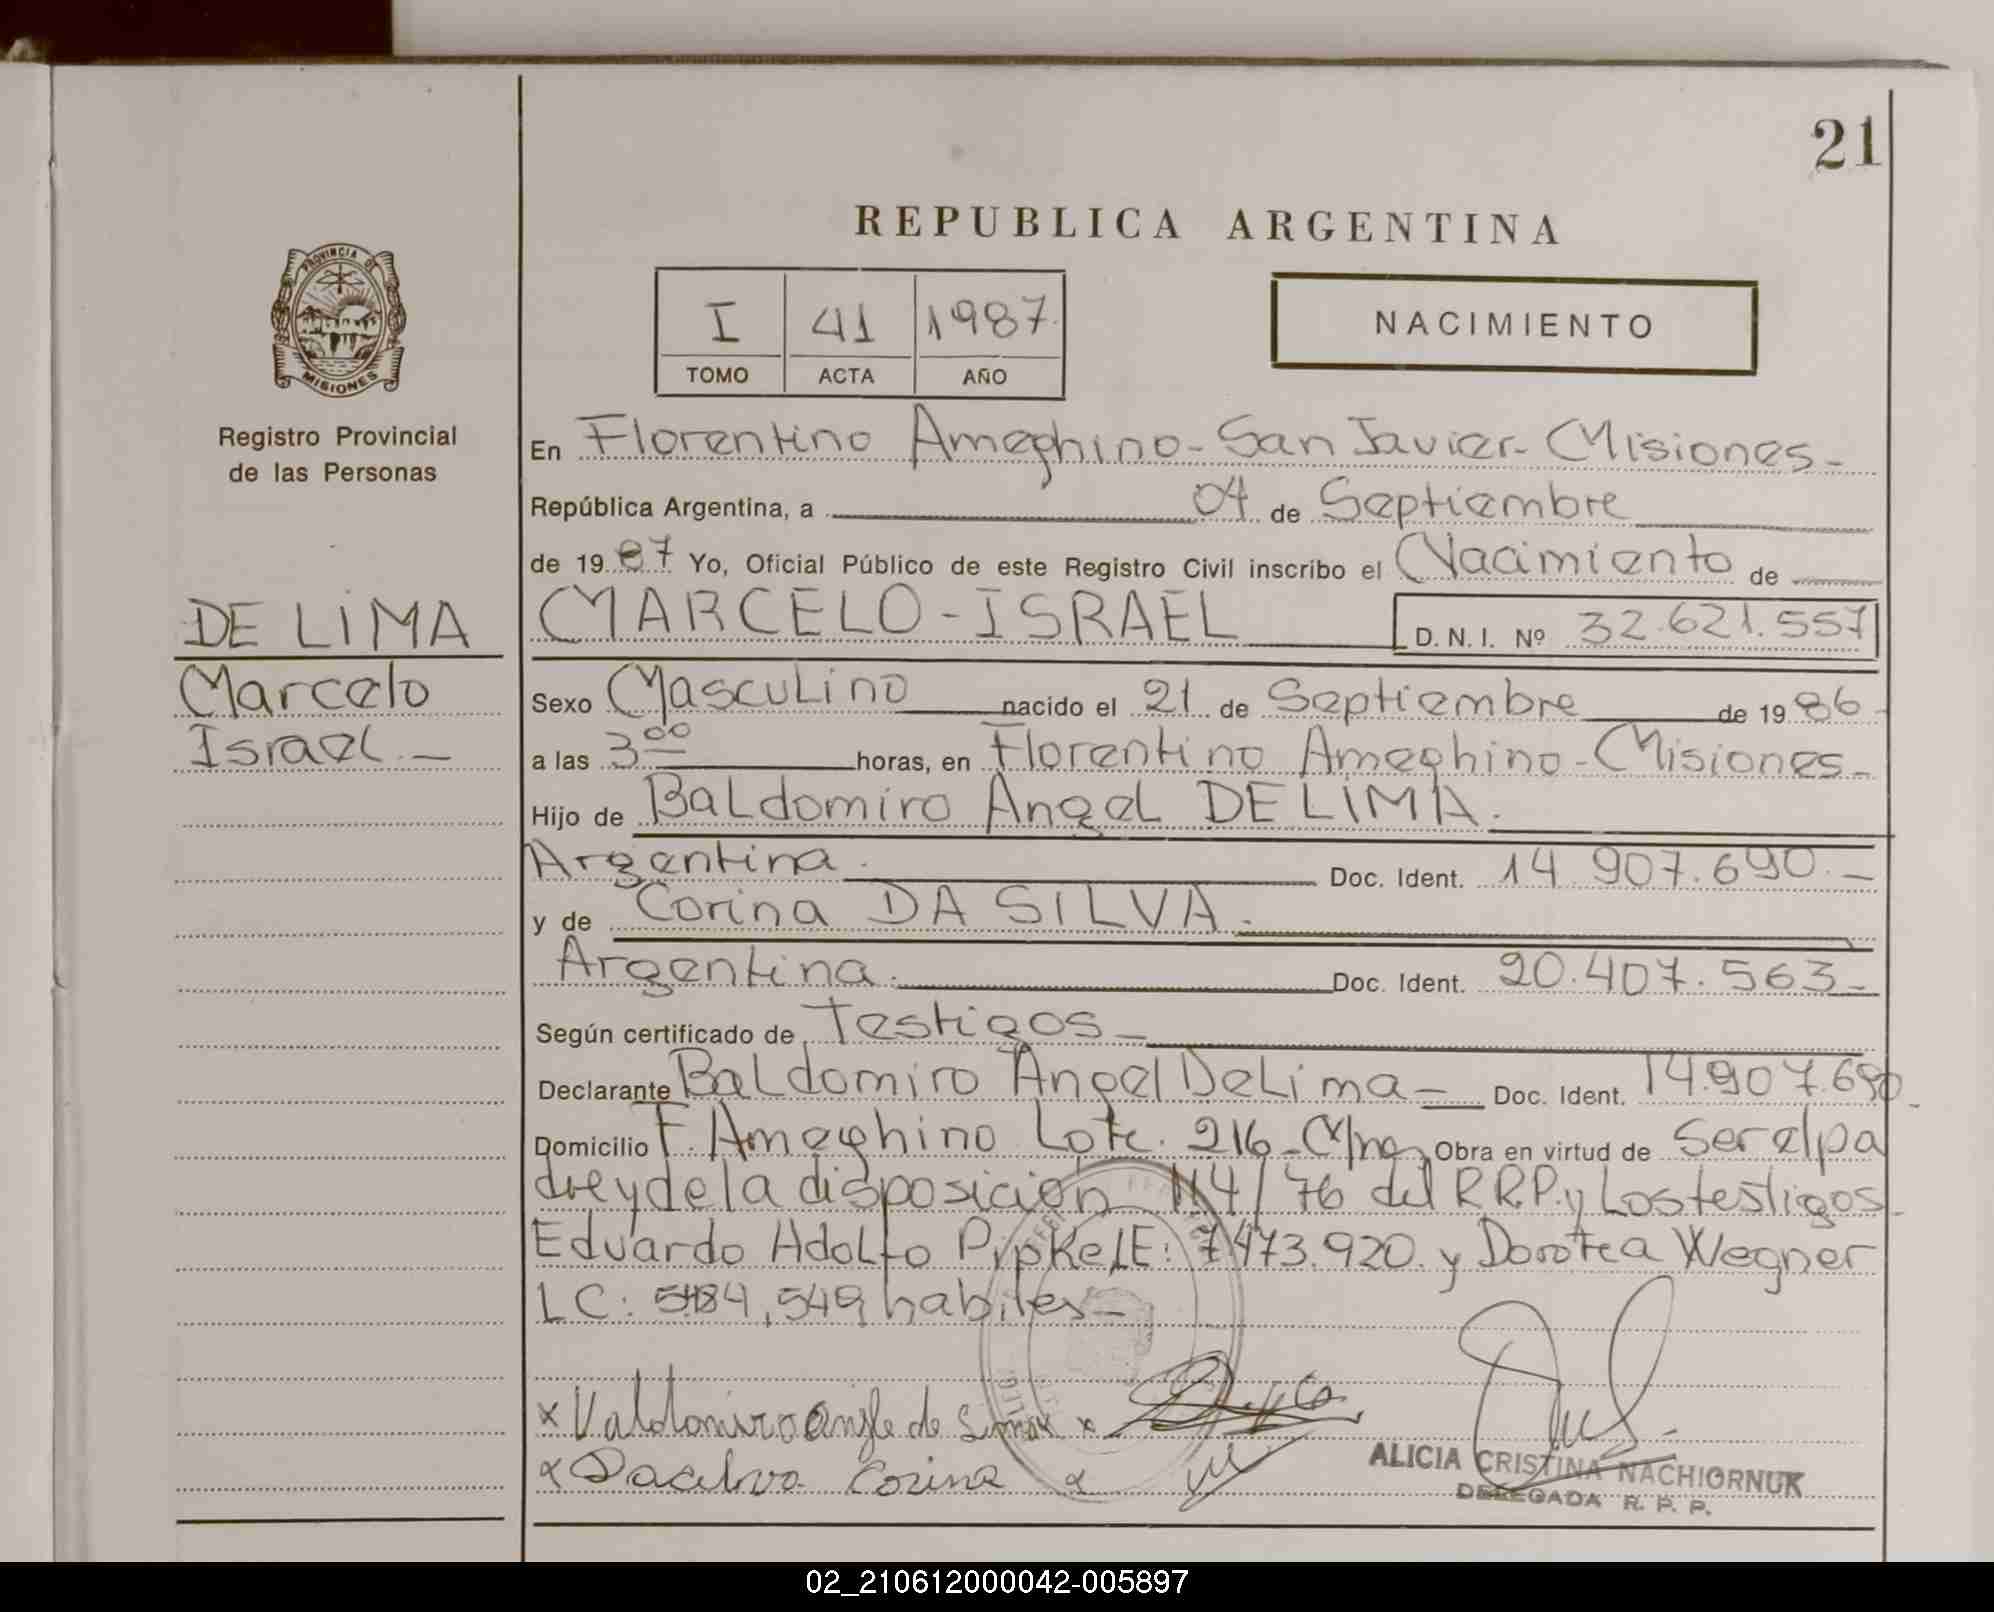 21
REPUBLICA ARGENTINA
PROVINCIA DE
MISIONES
Registro Provincial
de las Personas
I 41 1987
TOMO ACTA AÑO
NACIMIENTO
En Florentino Ameghino - San Javier - Misiones -
República Argentina, a 04 de Septiembre
de 1987 Yo, Oficial Público de este Registro Civil inscribo el Nacimiento de
DE LIMA
Marcelo
Israel. -
MARCELO - ISRAEL D. N. I. Nº 32.621.557
Sexo Masculino nacido el 21 de Septiembre de 1986 -
a las 3 00 horas, en Florentino Ameghino - Misiones -
Hijo de Baldomiro Angel DE LIMA.
Argentina. Doc. Ident. 14 907.690. -
y de Corina DA SILVA.
Argentina. Doc. Ident. 20.407.563 -
Según certificado de Testigos -
Declarante Baldomiro Angel De Lima - Doc. Ident. 14.907.690 -
Domicilio F. Ameghino Lote. 216 - Obra en virtud de Ser el pa
dre y de la disposición 114/76 del R.R.P. y Los testigos
Eduardo Adolfo LE: 7.473.920. y Dorotea Wegner
LC: 549 habiles -
x Valdomiro de Lima x
x Dacelva Corina x
ALICIA CRISTINA NACHIORNUK
DELEGADA R. P. P.
02_210612000042-005897